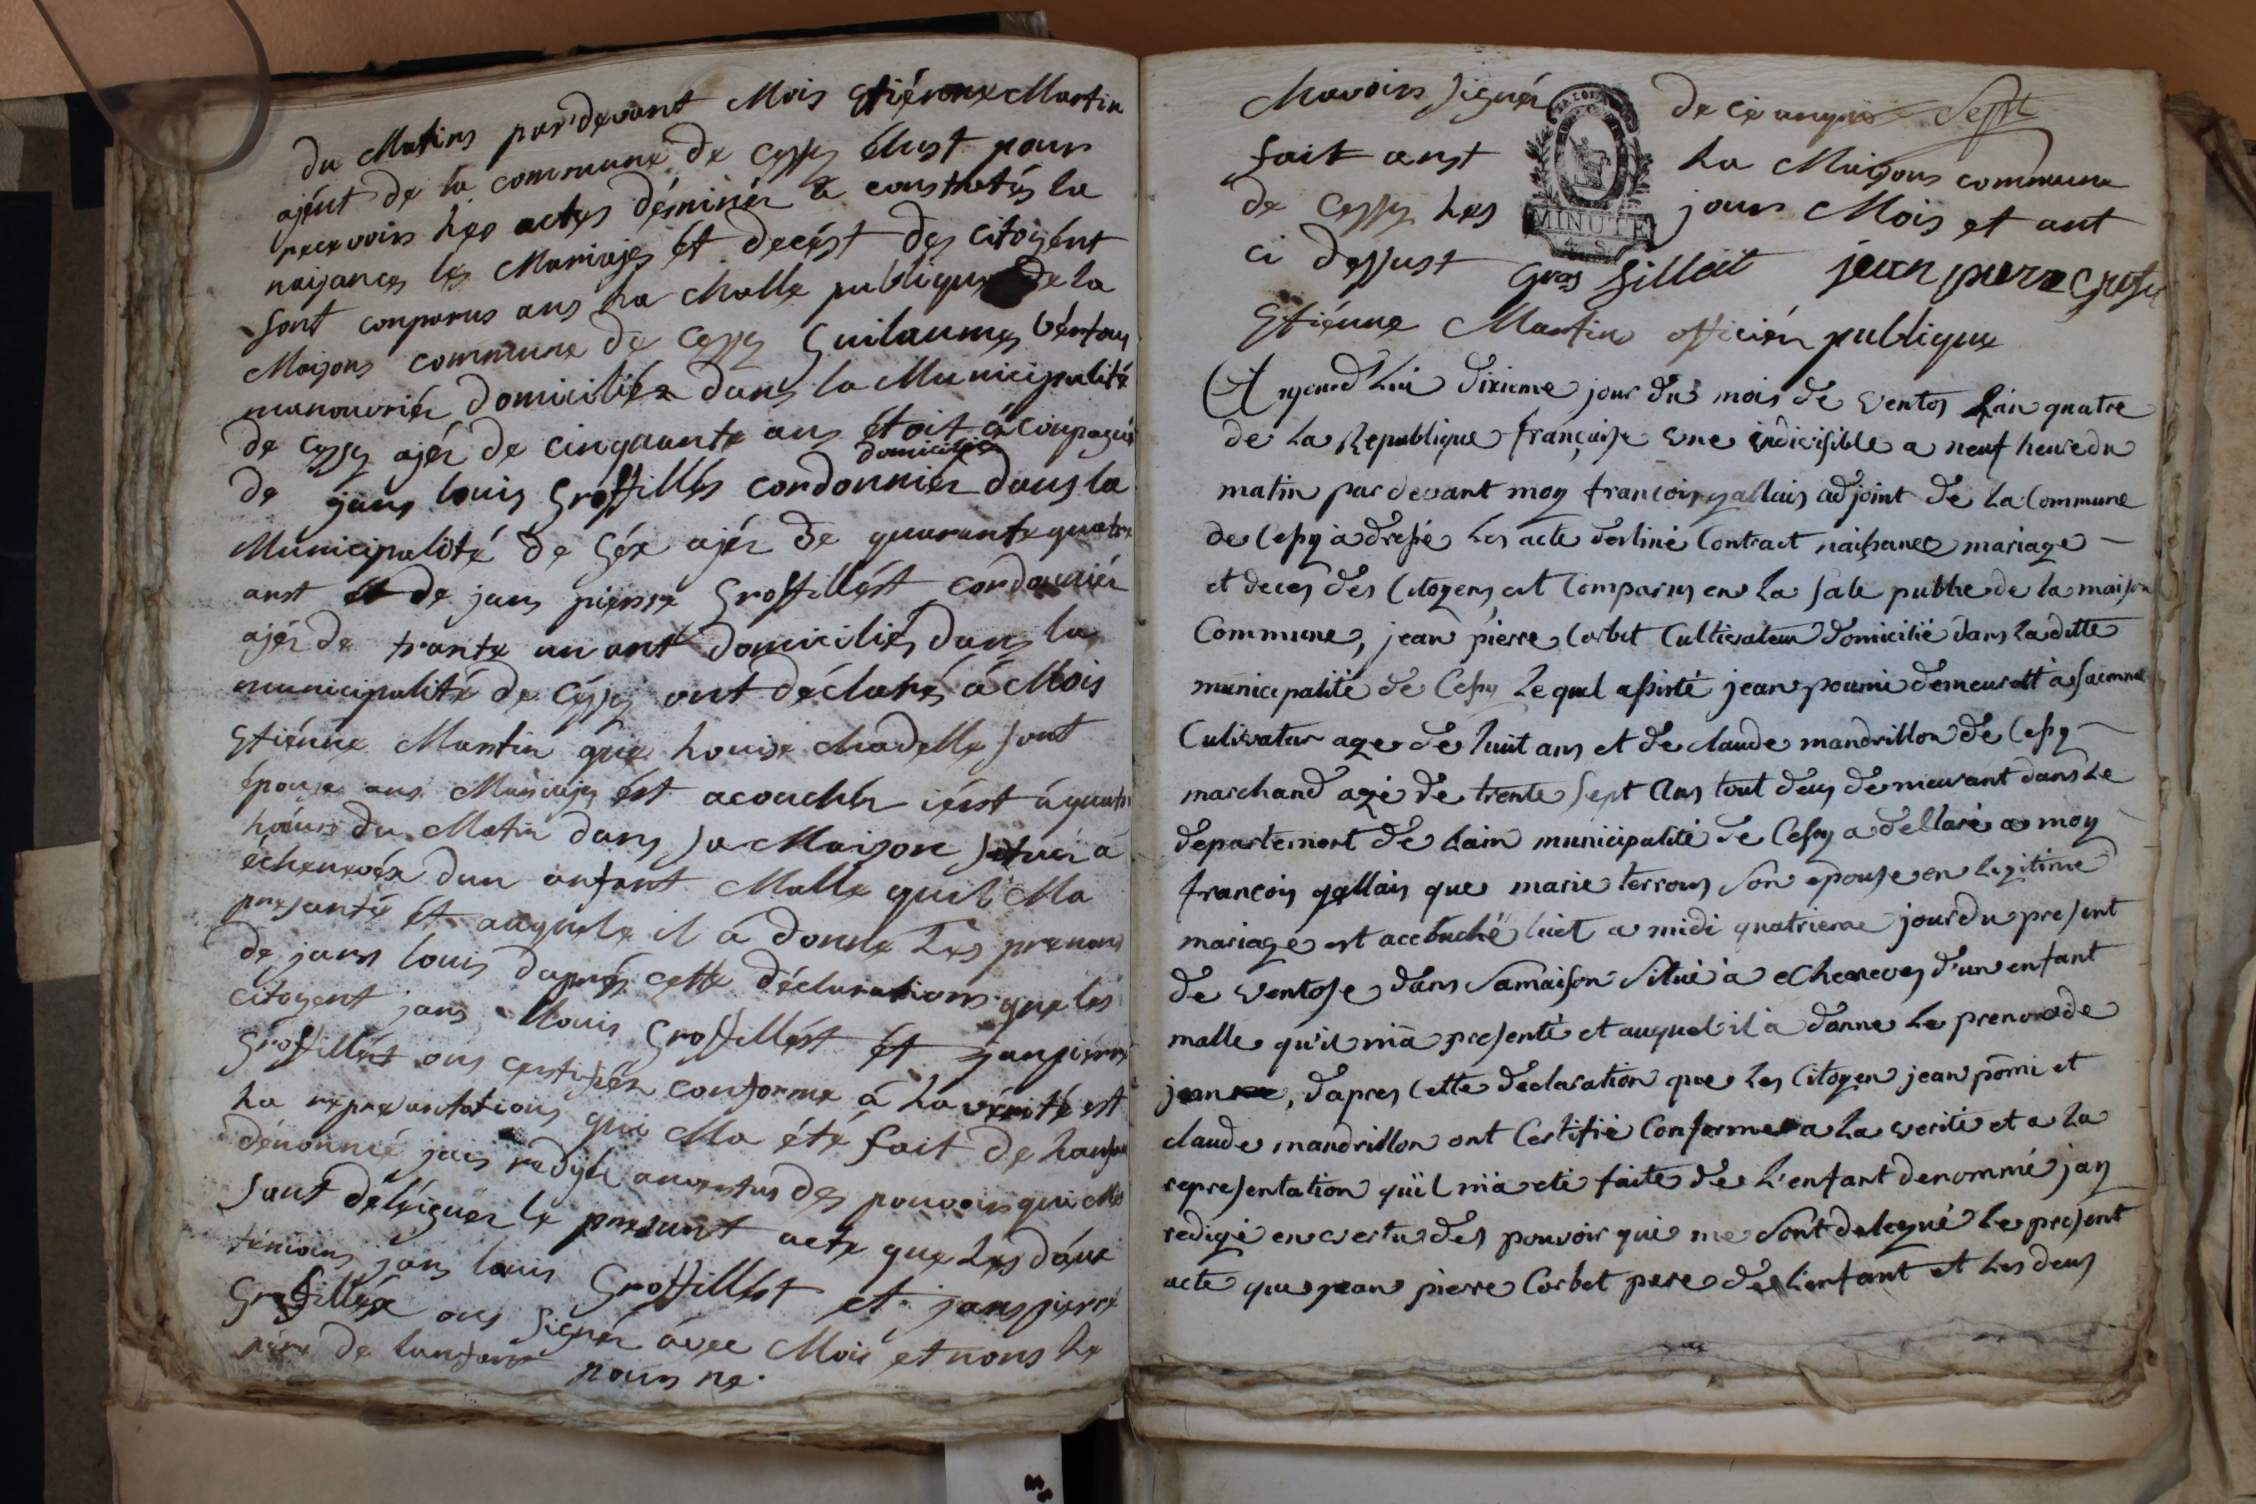 du Matins par devant Mois Etiénne Martin
ajént de la commune de cessy élust pour
recevoirs les actes déstinér à constatés la
naisances les Mariajes et decést des citoyént
sont conparus ans la Malle publique de la
Maisons commune de cessy Guilaumes
manouvriér domiciliér dans la Municipalité
de cessy ajér de cinquante ans étoit acoupagné
domiciliér
de jans louis Grosfilléx cordonniér dans la
Municipalité de Géx ajér de quarante quatre
anst et de jans pierre Grosfillést cordonniér
ajér de trante un ant domiciliés dans la
municipalité de céssy ont déclaré à Mois
Etiénne Martin que Louise chadelle sont
épouse ans Mariajes ést acouchér iérst à quatre
heures du Matin dans sa Maison situér à
échenevéx dun anfant Malle quil Ma
presanté ét auquele il à donné Les prenoms
de jans louis daprés cette déclarations que les
citoyent jans Louis Grosfillést ét janpierre
Grosfillést ons certifiér conforme à la vérité est
la represantations qui Ma été fait de lanfan
dénonmé jais redyjé anvertus des pouvoirs qui Me
sont délléiguér le presant acte que Les déux
temoins jans louis Grosfillést et jans pierre
Grosfilléx ons signér avec Mois et nons le
pére de lanfant pour ne
Mavoirs signér de ce anquis Sept
fait anst la Maisons commune
de cessy les jours Mois et ant
MINUTE
ci dessust Gros fillait jean pierre Grosfi
Etiénne Martin officiér publique
Aujourd'hui dixieme jour du mois de ventos L'ain quatre
de la Republique française une indivisible a neuf heure du
matin par devant moy françois gallais adjoint de la Commune
de Cessy à dresse les acte destiné Contract naissance mariage
et deces des Citoyens est Comparus en la sale publie de la maison
Commune, jean pierre Corbet Cultivateur domicilié dans la ditte
municipalité de Cessy Lequel assisté jean poumi demeurant à
Culivatur age de huit ans et de claude mandrillon de Cessy
marchand agé de trente sept Ans tout deus demeurant dans Le
departement de Lain municipalité de Cessy a dellaré a moy
françois gallais que marie terrous son epouse en legitime
mariage est accouché a midi quatrieme jour du present
de ventose dans Samaison Situé à echenevex d'un enfant
malle qu'il m'à presenté et auquel il à donne Le prenom de
jean, d'apres Cette declaration que Les Citoyen jean pomi et
claude mandrillon ont Certifié Conforme a La verité et a La
representation qu'il m'à eté faite de L'enfant denommé jay
redigé en vertu des pouvoir qui me Sont delegué Le present
acte que jean pierre Corbet pere de Lenfant et Les deus